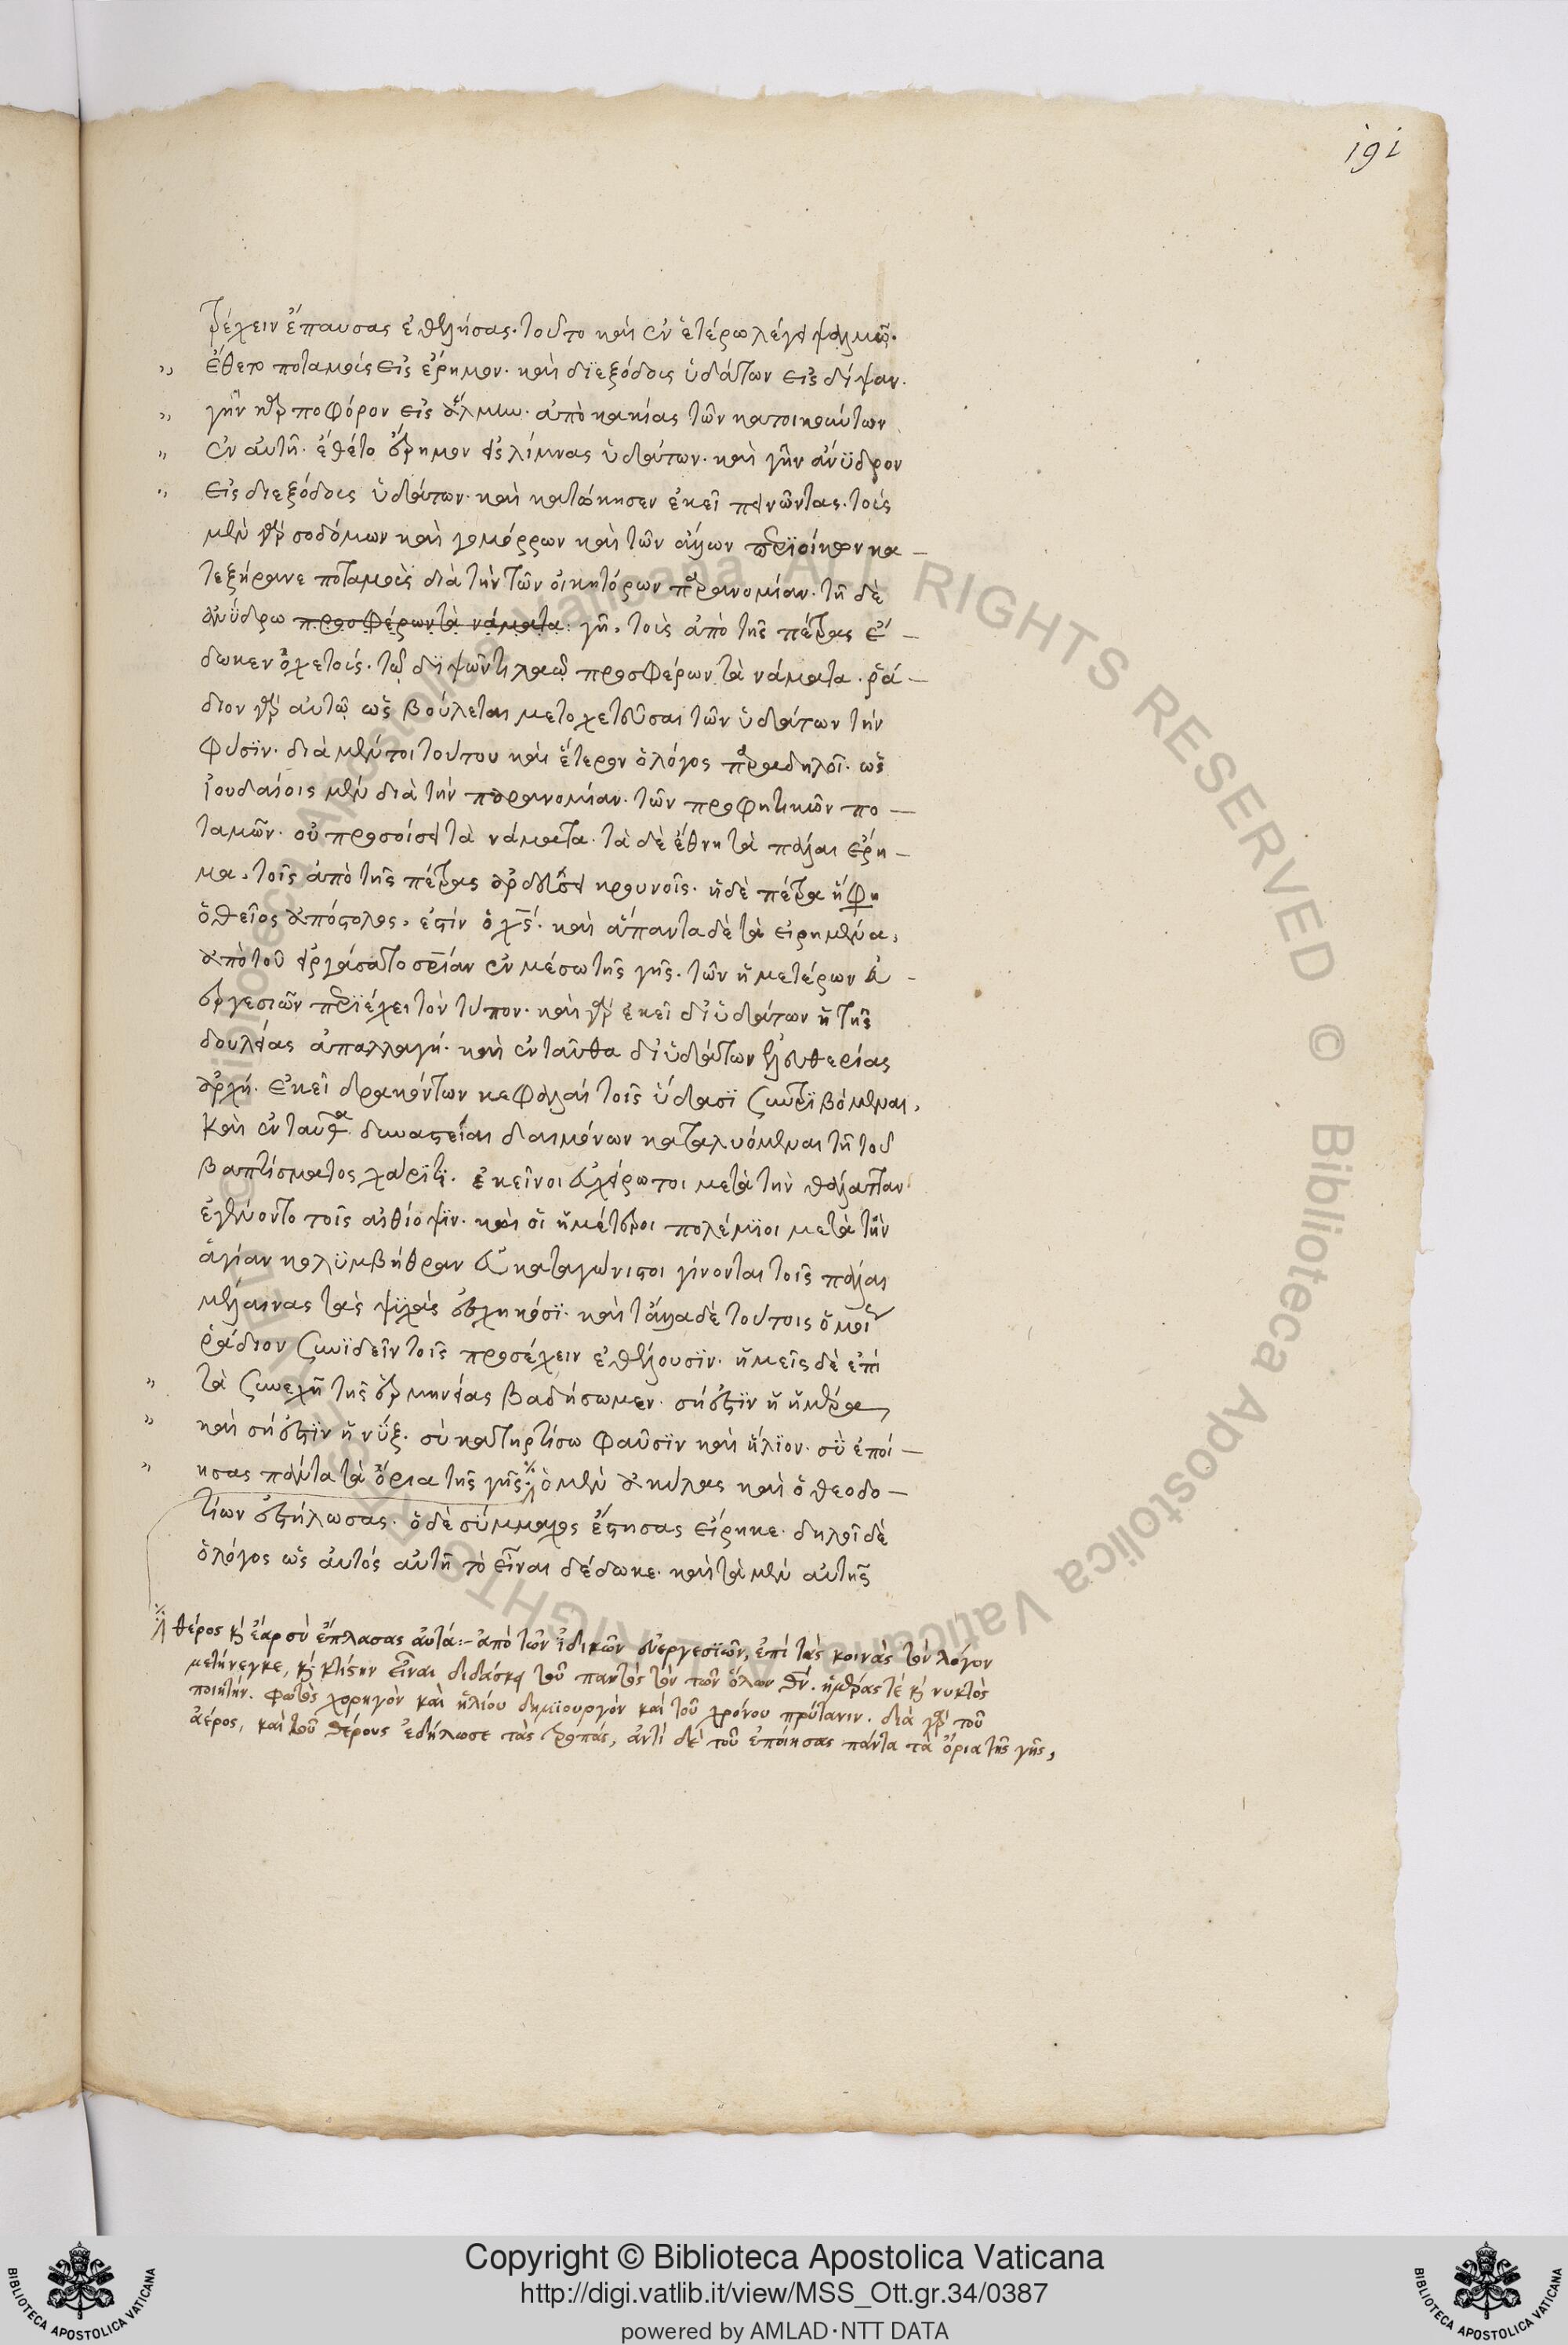 191
τρέχειν ἔπαυσας ἐθελήσας. τοῦτο καὶ ἐν ἑτέρω λέγει ψαλμῶ.
ἔθετο ποταμοὺς εἰς ἔρημον. καὶ διεξόδους ὑδάτων εἰς δίψαν.
γῆν καρποφόρον εἰς ἅλμην. ἀπὸ κακίας τῶν κατοικούντων
ἐν αὐτῆ. ἔθετο ἔρημον εἰς λίμνας ὑδάτων. καὶ γῆν ἄνυδρον
εἰς διεξόδους ὑδάτων. καὶ κατώκησεν ἐκεῖ πεινῶντας. τοὺς
μὲν γὰρ σοδόμων καὶ γομόρρων καὶ τῶν ἄλλων περιοίκων κα-
τεξήρανε ποταμοὺς διὰ τὴν τῶν οἰκητόρων παρανομίαν. τῆ δὲ
ἀνύδρω προσφέρων τὰ νάματα: γῆ, τοὺς ἀπὸ τῆς πέτρας ἔ-
δωκεν ὀχετοὺς. τῷ διψῶντι λαῷ προσφέρων τὰ νάματα. ῥά-
διον γὰρ αὐτῷ ὡς βούλεται μετοχετεῦσαι τῶν ὑδάτων τὴν
φύσιν. διὰ μέντοι τούτου καὶ ἕτερον ὁ λόγος παραδηλοῖ. ὡς
ἰουδαίοις μὲν διὰ τὴν παρανομίαν. τῶν προφητικῶν πο-
ταμῶν. οὐ προσοίσει τὰ νάματα. τὰ δὲ ἔθνη τὰ πάλαι ἔρη-
μα, τοῖς ἀπὸ τῆς πέτρας ἀρδεύσει κρουνοῖς. ἡ δὲ πέτρα ἥ φη
ὁ θεῖος ἀπόστολος, ἐστίν ὁ χς. καὶ ἅπαντα δὲ τὰ εἰρημένα,
ἀπὸ τοῦ εἰργάσατο σρίαν ἐν μέσω τῆς γῆς. τῶν ἡμετέρων εὐ-
εργεσιῶν περιέχει τὸν τύπον. καὶ γὰρ ἐκεῖ δι' ὑδάτων ἡ τῆς
δουλείας ἀπαλλαγή. καὶ ἐνταῦθα δι' ὑδάτων ἐλευθερίας
ἀρχή. ἐκεῖ δρακόντων κεφαλαὶ τοῖς ὕδασι συντριβόμεναι,
καὶ ἐνταῦθα δυναστεῖαι δαιμόνων καταλυόμεναι τῆ τοῦ
βαπτίσματος χάριτι. ἐκεῖνοι εὐχείρωτοι μετὰ τὴν θάλατταν
ἐγένοντο τοῖς αἰθίοψιν. καὶ οἱ ἡμέτεροι πολέμιοι μετὰ τὴν
ἁγίαν κολυμβήθραν εὐκαταγώνιστοι γίνονται τοῖς πάλαι
μελαίνας τὰς ψυχὰς ἐσχηκόσι. καὶ τἄλλα δὲ τούτοις ὅμοια
ῥάδιον συνιδεῖν τοῖς προσέχειν ἐθέλουσιν. ἡμεῖς δὲ ἐπὶ
τὰ συνεχῆ τῆς ἑρμηνείας βαδήσωμεν. σή ἐστιν ἡ ἡμέρα,
καὶ σή ἐστιν ἡ νύξ. σὺ κατηρτίσω φαῦσιν καὶ ἥλιον. σὺ ἐποί-
ησας πάντα τὰ ὅρια τῆς γῆς: ὁ μὲν ἀκύλας καὶ ὁ θεοδο-
τίων ἐστήλωσας. ὁ δὲ σύμμαχος ἔστησας εἴρηκε. δηλοῖ δὲ
ὁ λόγος ὡς αὐτός αὐτῆ τὸ εἶναι δέδωκε. καὶ τὰ μὲν αὐτῆς
θέρος κὶ ἔαρ σὺ ἔπλασας αὐτά:- ἀπὸ τῶν ἰδικῶν εὐεργεσιῶν, ἐπὶ τὰς κοινὰς τὸν λόγον
μετήνεγκε, κὶ κτίστην εἶναι διδάσκει τοῦ παντὸς τὸν τῶν ὅλων θν. ἡμέρας τέ κὶ νυκτὸς
ποιητήν. φωτὸς χορηγὸν καὶ ἡλίου δημιουργὸν καὶ τοῦ χρόνου πρύτανιν. διὰ γὰρ τοῦ
ἀέρος, καὶ τοῦ θέρους ἐδήλωσε τὰς τροπάς, ἀντὶ δὲ τοῦ ἐποίησας πάντα τὰ ὅρια τῆς γῆς,
Copyright © Biblioteca Apostolica Vaticana
http://digi.vatlib.it/view/MSS_Ott.gr.34/0387
powered by AMLAD·NTT DATA